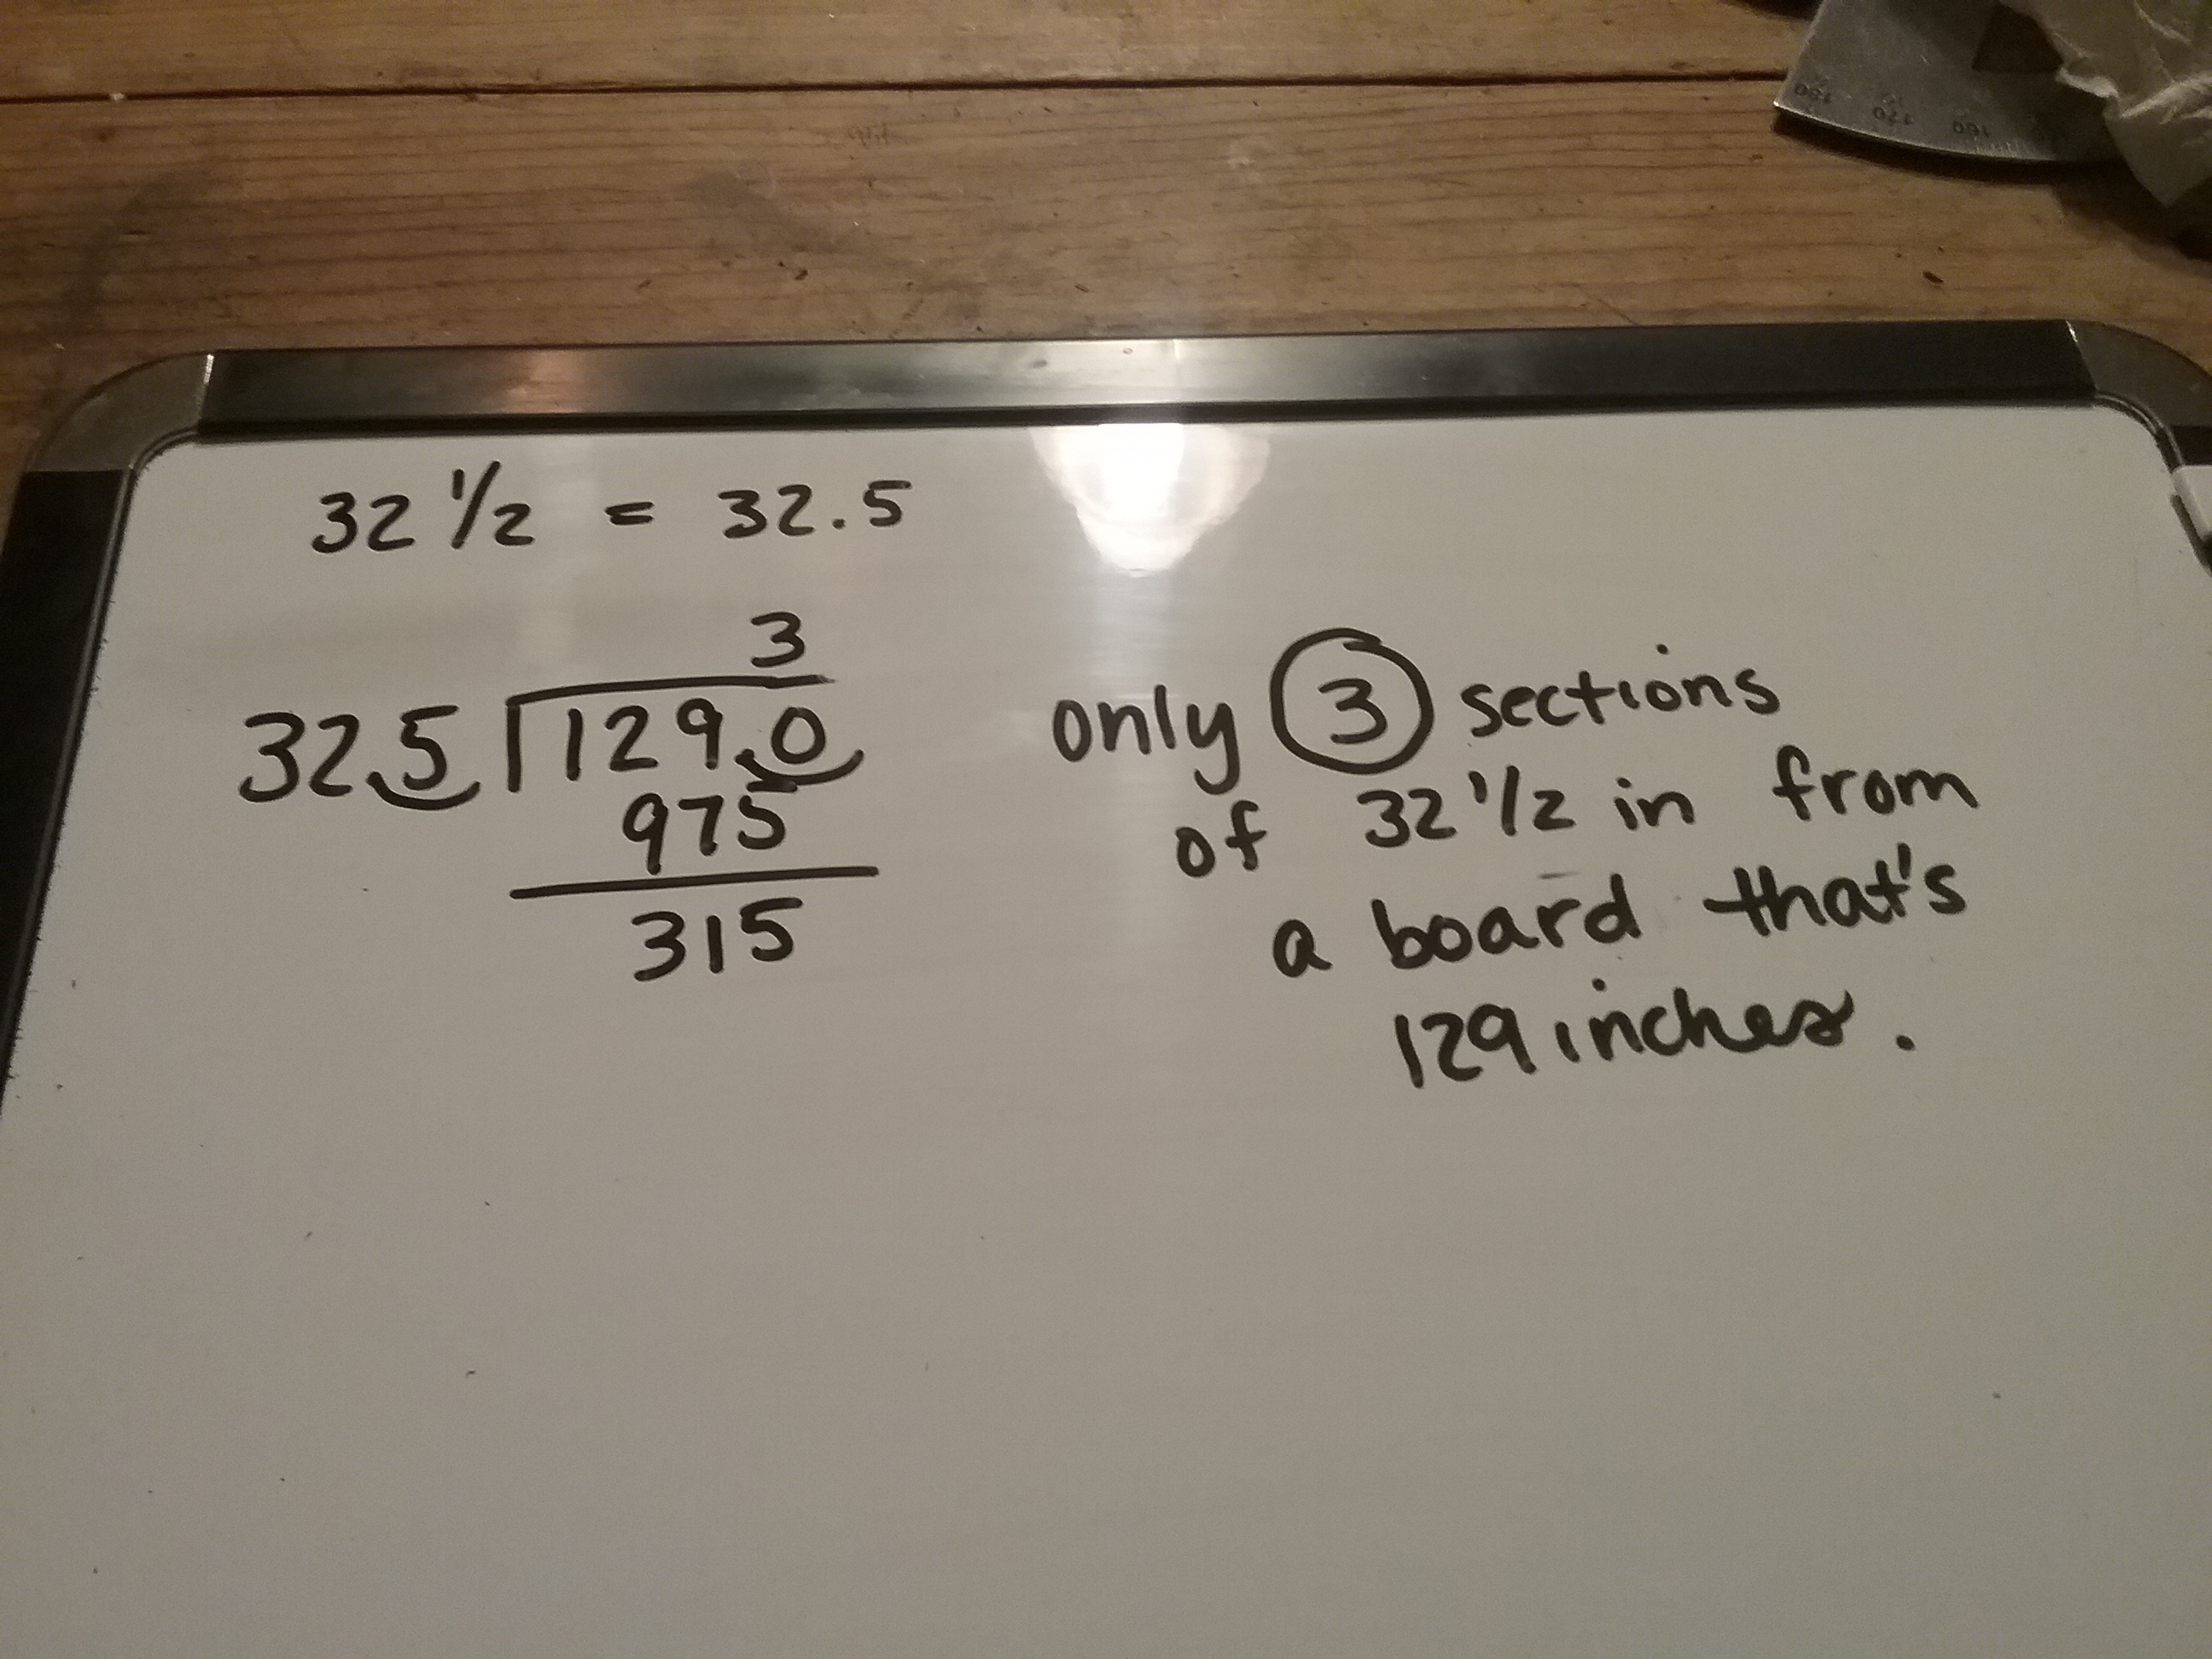 32 1/2 = 32.5
3
32.5 129.0
975
315
only 3 sections
of 32 1/2 in from
a board that's
129 inches.
180
170
160